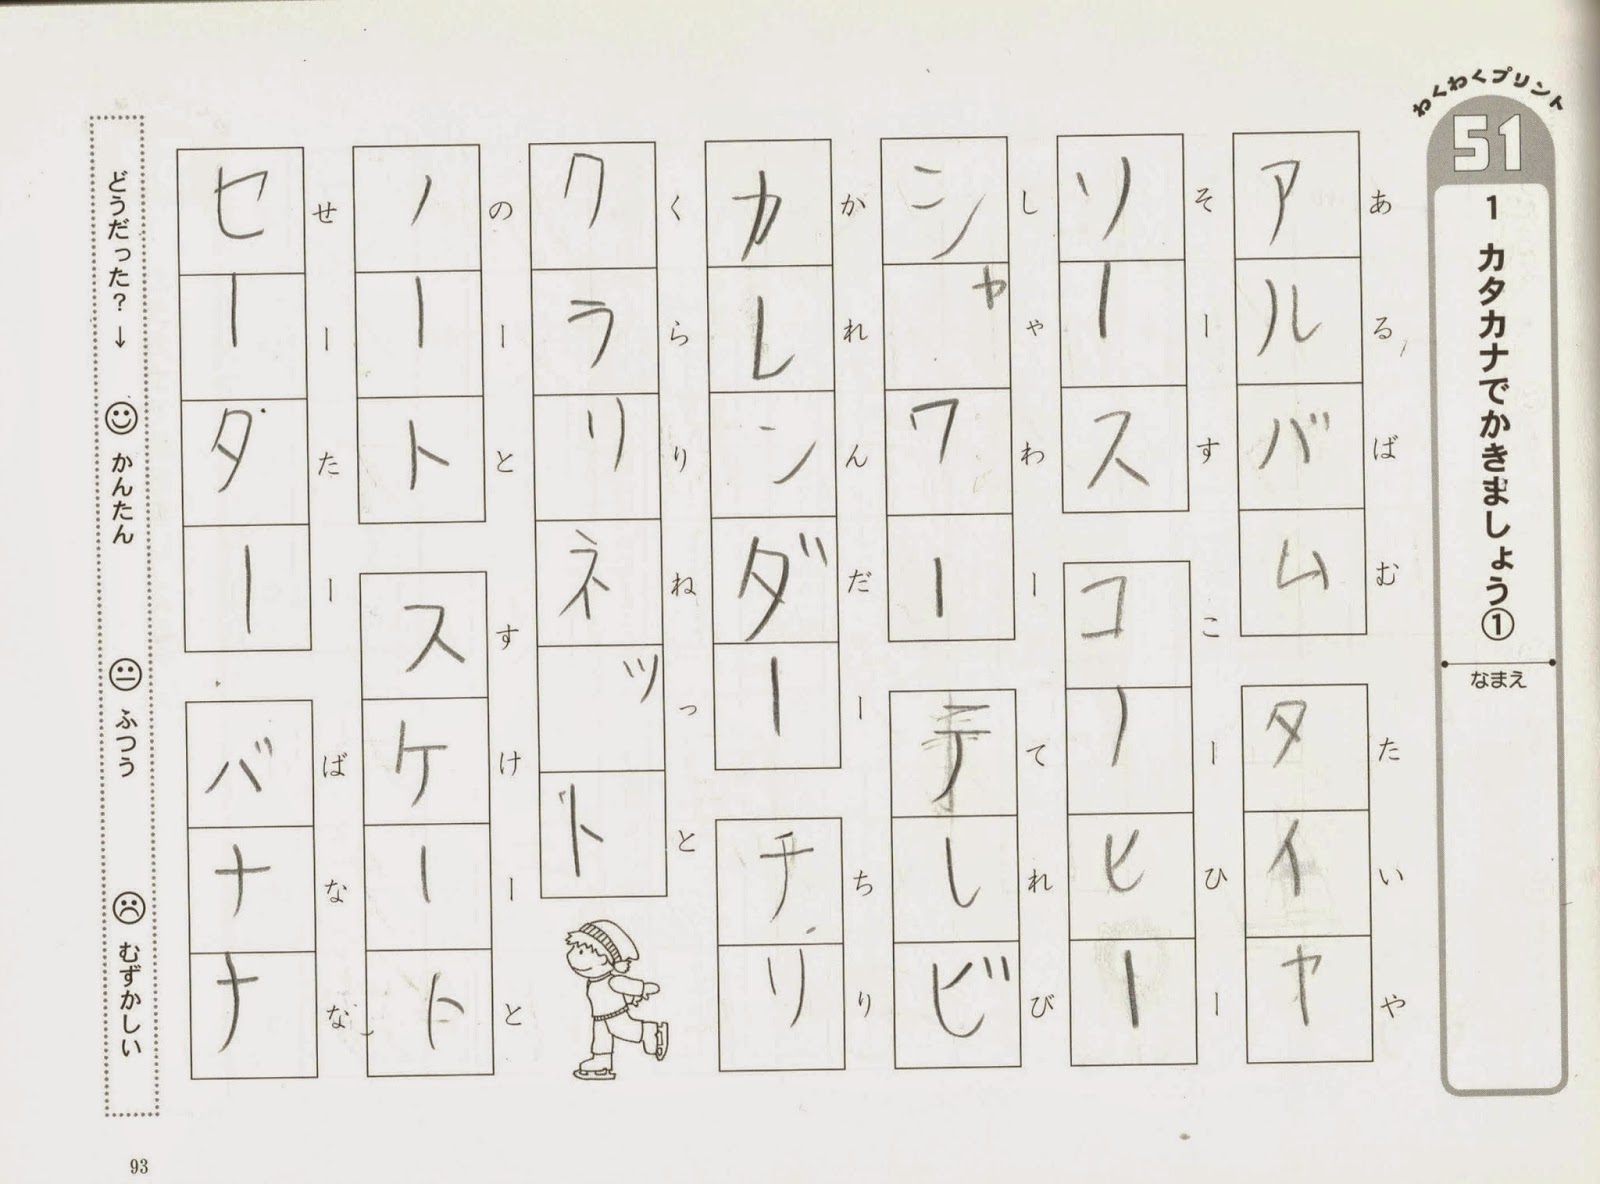 わくわくプリント
51
1 カタカナでかきましょう①
なまえ
あるばむ
アルバム
たいや
タイヤ
そーす
ソース
こーひー
コーヒー
しゃわー
シャワー
てれび
テレビ
かれんだー
カレンダー
ちり
チリ
くらりねっと
クラリネット
のーと
ノート
すけーと
スケート
せーたー
セーター
ばなな
バナナ
どうだった？→ かんたん ふつう むずかしい
93